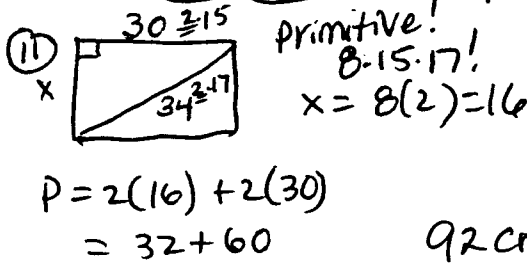 11
30 = 2·15
x
34 = 2·17
primitive!
8-15-17!
x = 8(2)=16
P = 2(16) + 2(30)
= 32 + 60
92 c